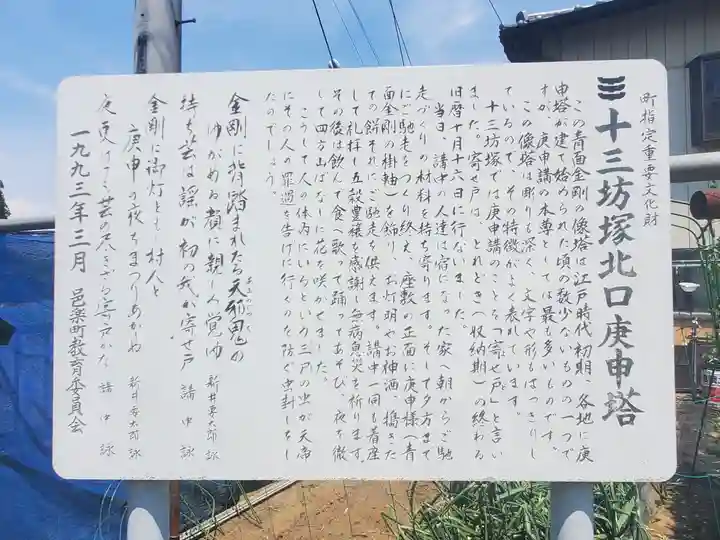 町指定重要文化財
十三坊塚北口庚申塔
この青面金剛の像塔は江戸時代初期、各地に庚
申塔が建て始められた頃の数少ないものの一つで
すが、庚申講の本尊としては最も多いものです。
この像塔は彫りも深く、文字や形もはっきりし
ているので、その特徴がよく表れています。
十三坊塚では庚申講のことを「寄せ戸」と言い
ました。寄せ戸は、とれどき(収納期)の終わる
旧暦十月十六日に行ないました。
当日、講中の人達は宿になった家へ朝からご馳
走づくりの材料を持ち寄ります。そして夕方まで
にご馳走をつくり終え、座敷の正面に庚申様(青
面金剛の掛軸)を飾り、お灯明やお神酒、搗きた
ての餅それにご馳走を供えます。講中一同も着座
して礼拝し五穀豊穣を感謝し無病息災を祈ります。
その後は飲んで食べ歌って踊ってあそび、夜を徹
して四方山ばなしに花を咲かせました。
こうして人の体内にいるという三尸の虫が天帝
にその人の罪過を告げに行くのを防ぐ虫封じをし
たのでしょう。
金剛に背踏まれたる天邪鬼の
ゆがめる顔に親しみ覚ゆ 新井寿太郎 詠
持ち芸は謡が初の我が寄せ戸 講中 詠
金剛に御灯ともし村人と
庚申の夜をまつりあかぬ 新井寿太郎 詠
夜更けても芸の尽きざる寄戸かな 講中 詠
一九九三年三月 邑楽町教育委員会